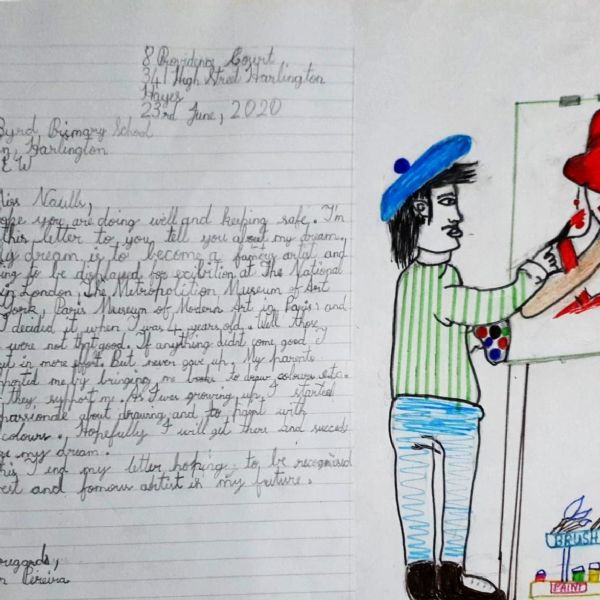 8 Providence Court
341 High Street Harlington
Hayes
23rd June, 2020
Byrd Primary School
n, Harlington
E W
iss Naulls,
ope you are doing well and keeping safe. I'm
this letter to you, tell you about my dream.
y dream is to become a famous artist and
ing to be displayed for exibition at The National
in London, The Metropolition Museum of Art
York, Paris Museum of Modern Art in Paris; and
I decided it when I was 4 years old. Well those
were not that good. If anything didnt come good I
ut in more effort. But never gave up. My parents
ported me by bringing me books to draw colours etc.
they support me. As I was growing up, I started
passionate about drawing and to paint with
colours. Hopefully I will get there and succeed
ge my dream.
his I end my letter hoping to be recognised
est and famous artist in my future.
regards,
n Pereira
BRUSH
PAINT